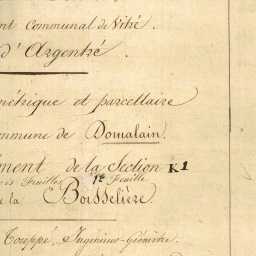 nt Communal de Vitré.
d'Argentré.
métrique et parcellaire
ommune de Domalain.
ment de la Section K1
Feuilles 1re Feuille
e la Boisselière
Touppé, Ingénieur-Géomètre.